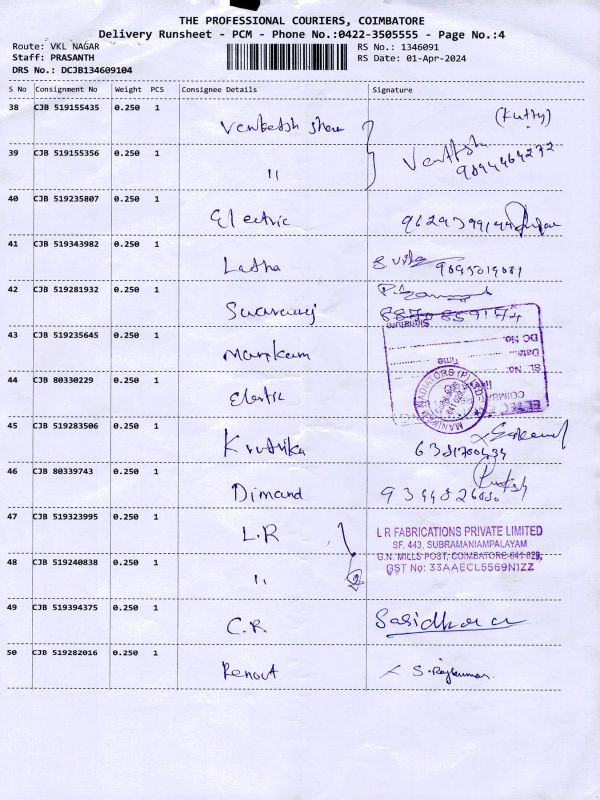 THE PROFESSIONAL COURIERS, COIMBATORE
Delivery Runsheet - PCM - Phone No.:0422-3505555 - Page No.:4
Route: VKL NAGAR RS No.: 1346091
Staff: PRASANTH RS Date: 01-Apr-2024
DRS No.: DCJB134609104
S No Consignment No Weight PCS Consignee Details Signature
38 CJB 519155435 0.250 1 (Kutty)
39 CJB 519155356 0.250 1 "
9894464272
40 CJB 519235807 0.250 1 Electric
41 CJB 519343982 0.250 1 Latha
42 CJB 519281932 0.250 1
43 CJB 519235645 0.250 1
Signature
DC No.
Date
Time
SL. No.
44 CJB 80330229 0.250 1
45 CJB 519283506 0.250 1 Krutrika
46 CJB 80339743 0.250 1 Dimand
47 CJB 519323995 0.250 1 L.R
L R FABRICATIONS PRIVATE LIMITED
SF. 443, SUBRAMANIAMPALAYAM
G.N. MILLS POST, COIMBATORE-641 029.
GST No: 33AAECL5569N1ZZ
48 CJB 519240838 0.250 1 " 2
49 CJB 519394375 0.250 1 C.R. Sasidharan
50 CJB 519282016 0.250 1 Renout S. Rajkumar